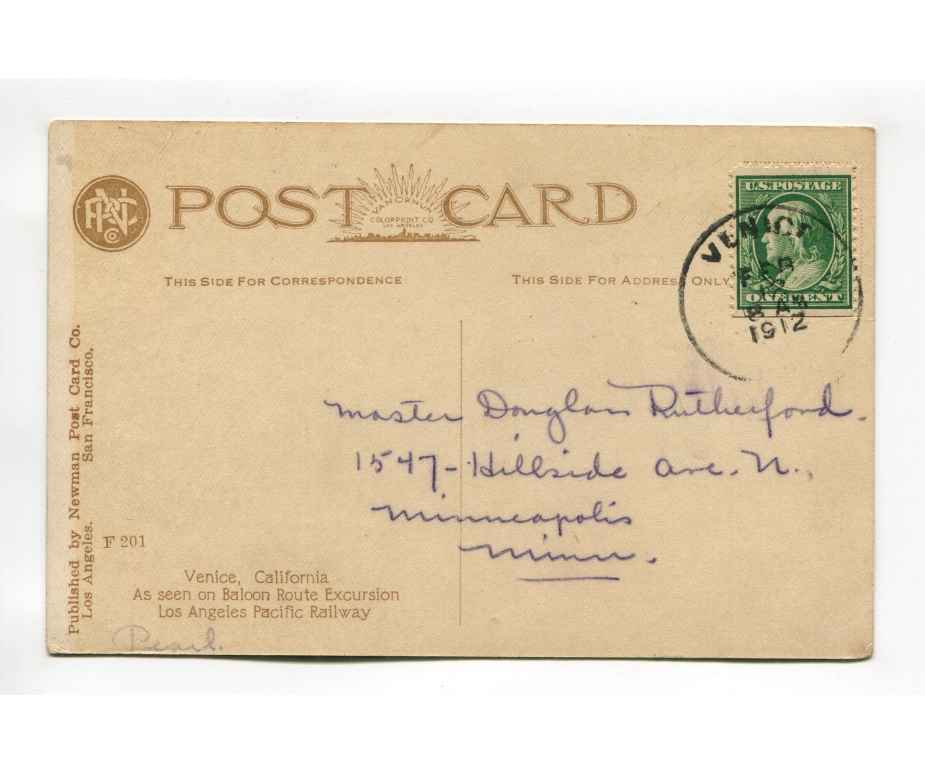 POST CARD
VAN ORNUM
COLORPRINT CO.
LOS ANGELES
THIS SIDE FOR CORRESPONDENCE
THIS SIDE FOR ADDRESS ONLY
U.S. POSTAGE
ONE CENT
VENICE
FEB
8 AM
1912
Master Douglass Rutherford.
1547- Hillside Ave. N.,
Minneapolis
Minn.
Published by Newman Post Card Co.
Los Angeles. San Francisco.
F 201
Venice, California
As seen on Baloon Route Excursion
Los Angeles Pacific Railway
Pearl.